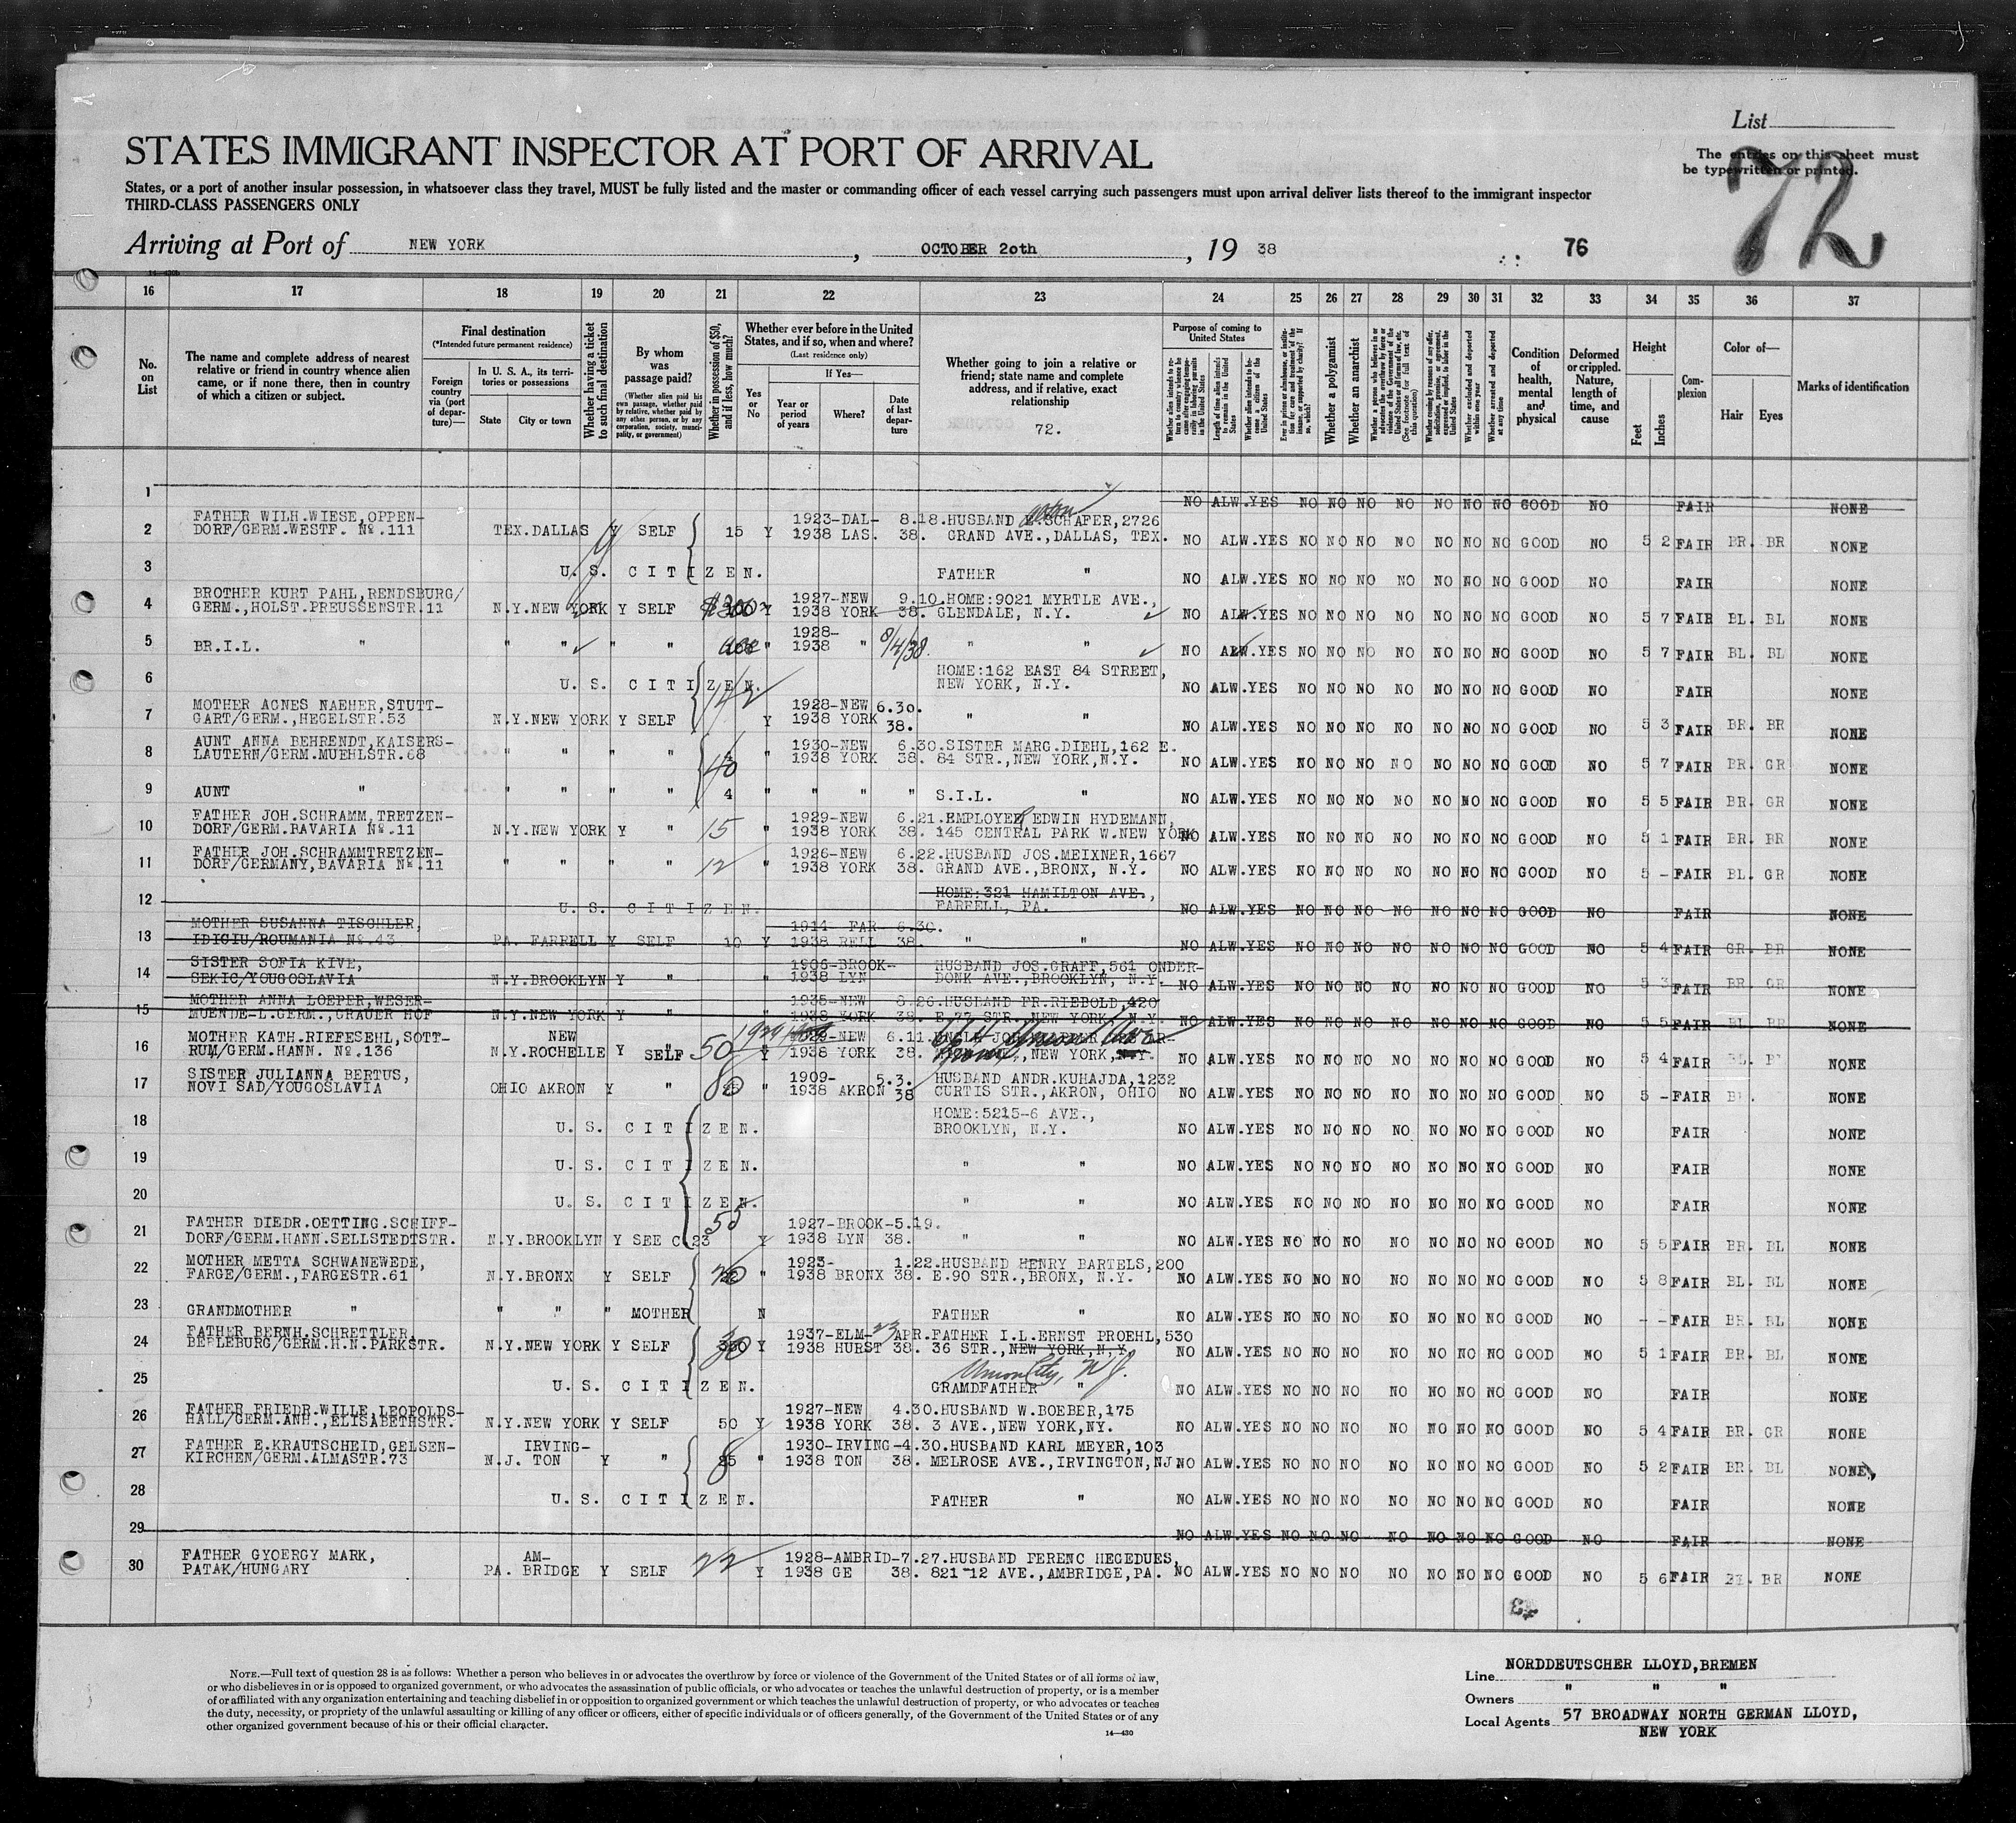 List
The entries on this sheet must
be typewritten or printed.
72
STATES IMMIGRANT INSPECTOR AT PORT OF ARRIVAL
States, or a port of another insular possession, in whatsoever class they travel, MUST be fully listed and the master or commanding officer of each vessel carrying such passengers must upon arrival deliver lists thereof to the immigrant inspector
THIRD-CLASS PASSENGERS ONLY
Arriving at Port of NEW YORK, OCTOBER 20th, 19 38
76
14—430b
16 17 18 19 20 21 22 23 24 25 26 27 28 29 30 31 32 33 34 35 36 37
No. on List
The name and complete address of nearest
relative or friend in country whence alien
came, or if none there, then in country
of which a citizen or subject.
Final destination
(*Intended future permanent residence)
Foreign country via (port of departure)—
In U. S. A., its territories or possessions
State
City or town
Whether having a ticket to such final destination
By whom was passage paid?
(Whether alien paid his own passage, whether paid by relative, whether paid by any other person, or by any corporation, society, municipality, or government)
Whether in possession of $50, and if less, how much?
Whether ever before in the United States, and if so, when and where?
(Last residence only)
Yes or No
If Yes—
Year or period of years
Where?
Date of last departure
Whether going to join a relative or
friend; state name and complete
address, and if relative, exact
relationship
72.
Purpose of coming to United States
Length of time alien intends to remain in the United States
Whether alien intends to become a citizen of the United States
Whether a polygamist
Whether an anarchist
Whether excluded and deported within one year
Whether arrested and deported at any time
Condition of health, mental and physical
Deformed or crippled. Nature, length of time, and cause
Height
Feet
Inches
Complexion
Color of—
Hair
Eyes
Marks of identification
1 NO ALW.YES NO NO NO NO NO NO NO GOOD NO FAIR NONE
FATHER WILH.WIESE,OPPEN- 1923-DAL- 8.18.HUSBAND SCHAFER,2726
2 DORF/GERM.WESTF. No.111 TEX.DALLAS Y SELF 15 Y 1938 LAS. 38. GRAND AVE.,DALLAS, TEX. NO ALW.YES NO NO NO NO NO NO NO GOOD NO 5 2 FAIR BR. BR NONE
3 U. S. CITIZEN. FATHER " NO ALW.YES NO NO NO NO NO NO NO GOOD NO FAIR NONE
BROTHER KURT PAHL,RENDSBURG/ 1927-NEW 9.10.HOME:9021 MYRTLE AVE.,
4 GERM.,HOLST.PREUSSENSTR.11 N.Y.NEW YORK Y SELF Y 1938 YORK 38. GLENDALE, N.Y. NO ALW.YES NO NO NO NO NO NO NO GOOD NO 5 7 FAIR BL. BL NONE
1928-
5 BR.I.L. " " " " " " 1938 " 8/4/38. " " NO ALW.YES NO NO NO NO NO NO NO GOOD NO 5 7 FAIR BL. BL NONE
HOME:162 EAST 84 STREET,
6 U. S. CITIZEN. NEW YORK, N.Y. NO ALW.YES NO NO NO NO NO NO NO GOOD NO FAIR NONE
142
MOTHER AGNES NAEHER,STUTT- 1928-NEW 6.30.
7 GART/GERM.,HEGELSTR.53 N.Y.NEW YORK Y SELF Y 1938 YORK 38. " " NO ALW.YES NO NO NO NO NO NO NO GOOD NO 5 3 FAIR BR. BR NONE
AUNT ANNA BEHRENDT,KAISERS- 1930-NEW 6.30.SISTER MARG.DIEHL,162 E.
8 LAUTERN/GERM.MUEHLSTR.68 " " " " 40 " 1938 YORK 38. 84 STR.,NEW YORK,N.Y. NO ALW.YES NO NO NO NO NO NO NO GOOD NO 5 7 FAIR BR. GR NONE
9 AUNT " " " " " 4 " " " " S.I.L. " NO ALW.YES NO NO NO NO NO NO NO GOOD NO 5 5 FAIR BR. GR NONE
FATHER JOH.SCHRAMM,TRETZEN- 1929-NEW 6.21.EMPLOYER EDWIN HYDEMANN,
10 DORF/GERM.BAVARIA No.11 N.Y.NEW YORK Y " 15 " 1938 YORK 38. 145 CENTRAL PARK W.NEW YORK NO ALW.YES NO NO NO NO NO NO NO GOOD NO 5 1 FAIR BR. BR NONE
FATHER JOH.SCHRAMMTRETZEN- 1926-NEW 6.22.HUSBAND JOS.MEIXNER,1667
11 DORF/GERMANY,BAVARIA No.11 " " " " 12 " 1938 YORK 38. GRAND AVE.,BRONX, N.Y. NO ALW.YES NO NO NO NO NO NO NO GOOD NO 5 - FAIR BL. GR NONE
HOME:321 HAMILTON AVE.,
12 U. S. CITIZEN. FARRELL, PA. NO ALW.YES NO NO NO NO NO NO NO GOOD NO FAIR NONE
MOTHER SUSANNA TISCHLER, 1914- FAR- 6.30.
13 IDICIU/ROUMANIA No.43 PA. FARRELL Y SELF 10 Y 1938 RELL 38. " " NO ALW.YES NO NO NO NO NO NO NO GOOD NO 5 4 FAIR GR. BR NONE
SISTER SOFIA KIVE, 1906-BROOK- HUSBAND JOS.GRAFF,561 ONDER-
14 SEKIC/YOUGOSLAVIA N.Y.BROOKLYN Y " " 1938 LYN DONK AVE.,BROOKLYN, N.Y. NO ALW.YES NO NO NO NO NO NO NO GOOD NO 5 3 FAIR BR. GR NONE
MOTHER ANNA LOEPER,WESER- 1935-NEW 8.26.HUSBAND FR.RIEBOLD,420
15 MUENDE-L.GERM.,GRAUER HOF N.Y.NEW YORK Y " " 1938 YORK 38. E.77 STR.,NEW YORK, N.Y. NO ALW.YES NO NO NO NO NO NO NO GOOD NO 5 5 FAIR BL. BR NONE
MOTHER KATH.RIEFESEHL,SOTT- NEW 1929-NEW 6.11. Union Ave
16 RUM/GERM.HANN. No.136 N.Y.ROCHELLE Y SELF 50 Y 1938 YORK 38. Bronx, NEW YORK, N.Y. NO ALW.YES NO NO NO NO NO NO NO GOOD NO 5 4 FAIR BL. NONE
SISTER JULIANNA BERTUS, 1909- 5.3. HUSBAND ANDR.KUHAJDA,1232
17 NOVI SAD/YOUGOSLAVIA OHIO AKRON Y " 80 " 1938 AKRON 38 CURTIS STR.,AKRON, OHIO NO ALW.YES NO NO NO NO NO NO NO GOOD NO 5 - FAIR NONE
HOME:5215-6 AVE.,
18 U. S. CITIZEN. BROOKLYN, N.Y. NO ALW.YES NO NO NO NO NO NO NO GOOD NO FAIR NONE
19 U. S. CITIZEN. " " NO ALW.YES NO NO NO NO NO NO NO GOOD NO FAIR NONE
20 U. S. CITIZEN. " " NO ALW.YES NO NO NO NO NO NO NO GOOD NO FAIR NONE
FATHER DIEDR.OETTING.SCHIFF- 55 1927-BROOK-5.19.
21 DORF/GERM.HANN.SELLSTEDTSTR. N.Y.BROOKLYN Y SEE C.23 Y 1938 LYN 38. " " NO ALW.YES NO NO NO NO NO NO NO GOOD NO 5 5 FAIR BR. BL NONE
MOTHER METTA SCHWANEWEDE, 1923- 1.22.HUSBAND HENRY BARTELS,200
22 FARGE/GERM.,FARGESTR.61 N.Y.BRONX Y SELF 20 " 1938 BRONX 38. E.90 STR.,BRONX, N.Y. NO ALW.YES NO NO NO NO NO NO NO GOOD NO 5 8 FAIR BL. BL NONE
23 GRANDMOTHER " " " " MOTHER N FATHER " NO ALW.YES NO NO NO NO NO NO NO GOOD NO - - FAIR BR. BL NONE
FATHER BERNH.SCHRETTLER, 1937-ELM- 23 APR.FATHER I.L.ERNST PROEHL,530
24 BERLEBURG/GERM.H.N.PARKSTR. N.Y.NEW YORK Y SELF 30 Y 1938 HURST 38. 36 STR.,NEW YORK,N.Y. NO ALW.YES NO NO NO NO NO NO NO GOOD NO 5 1 FAIR BR. BL NONE
Union City, N J.
25 U. S. CITIZEN. GRAMDFATHER " NO ALW.YES NO NO NO NO NO NO NO GOOD NO FAIR NONE
FATHER FRIEDR.WILLE,LEOPOLDS- 1927-NEW 4.30.HUSBAND W.BOEBER,175
26 HALL/GERM.ANH.,ELISABETHSTR. N.Y.NEW YORK Y SELF 50 Y 1938 YORK 38. 3 AVE.,NEW YORK,NY. NO ALW.YES NO NO NO NO NO NO NO GOOD NO 5 4 FAIR BR. GR NONE
FATHER E.KRAUTSCHEID,GELSEN- IRVING- 1930-IRVING-4.30.HUSBAND KARL MEYER,103
27 KIRCHEN/GERM.ALMASTR.73 N.J. TON Y " 8 " 1938 TON 38. MELROSE AVE.,IRVINGTON,NJ NO ALW.YES NO NO NO NO NO NO NO GOOD NO 5 2 FAIR BR. BL NONE
28 U. S. CITIZEN. FATHER " NO ALW.YES NO NO NO NO NO NO NO GOOD NO FAIR NONE
29 NO ALW.YES NO NO NO NO NO NO NO GOOD NO FAIR NONE
FATHER GYOERGY MARK, AM- 1928-AMBRID-7.27.HUSBAND FERENC HEGEDUES,
30 PATAK/HUNGARY PA. BRIDGE Y SELF 22 Y 1938 GE 38. 821-12 AVE.,AMBRIDGE,PA. NO ALW.YES NO NO NO NO NO NO NO GOOD NO 5 6 FAIR BR NONE
NOTE.—Full text of question 28 is as follows: Whether a person who believes in or advocates the overthrow by force or violence of the Government of the United States or of all forms of law,
or who disbelieves in or is opposed to organized government, or who advocates the assassination of public officials, or who advocates or teaches the unlawful destruction of property, or is a member
of or affiliated with any organization entertaining and teaching disbelief in or opposition to organized government or which teaches the unlawful destruction of property, or who advocates or teaches
the duty, necessity, or propriety of the unlawful assaulting or killing of any officer or officers, either of specific individuals or of officers generally, of the Government of the United States or of any
other organized government because of his or their official character.
14—430
Line NORDDEUTSCHER LLOYD,BREMEN
Owners " " "
Local Agents 57 BROADWAY NORTH GERMAN LLOYD,
NEW YORK